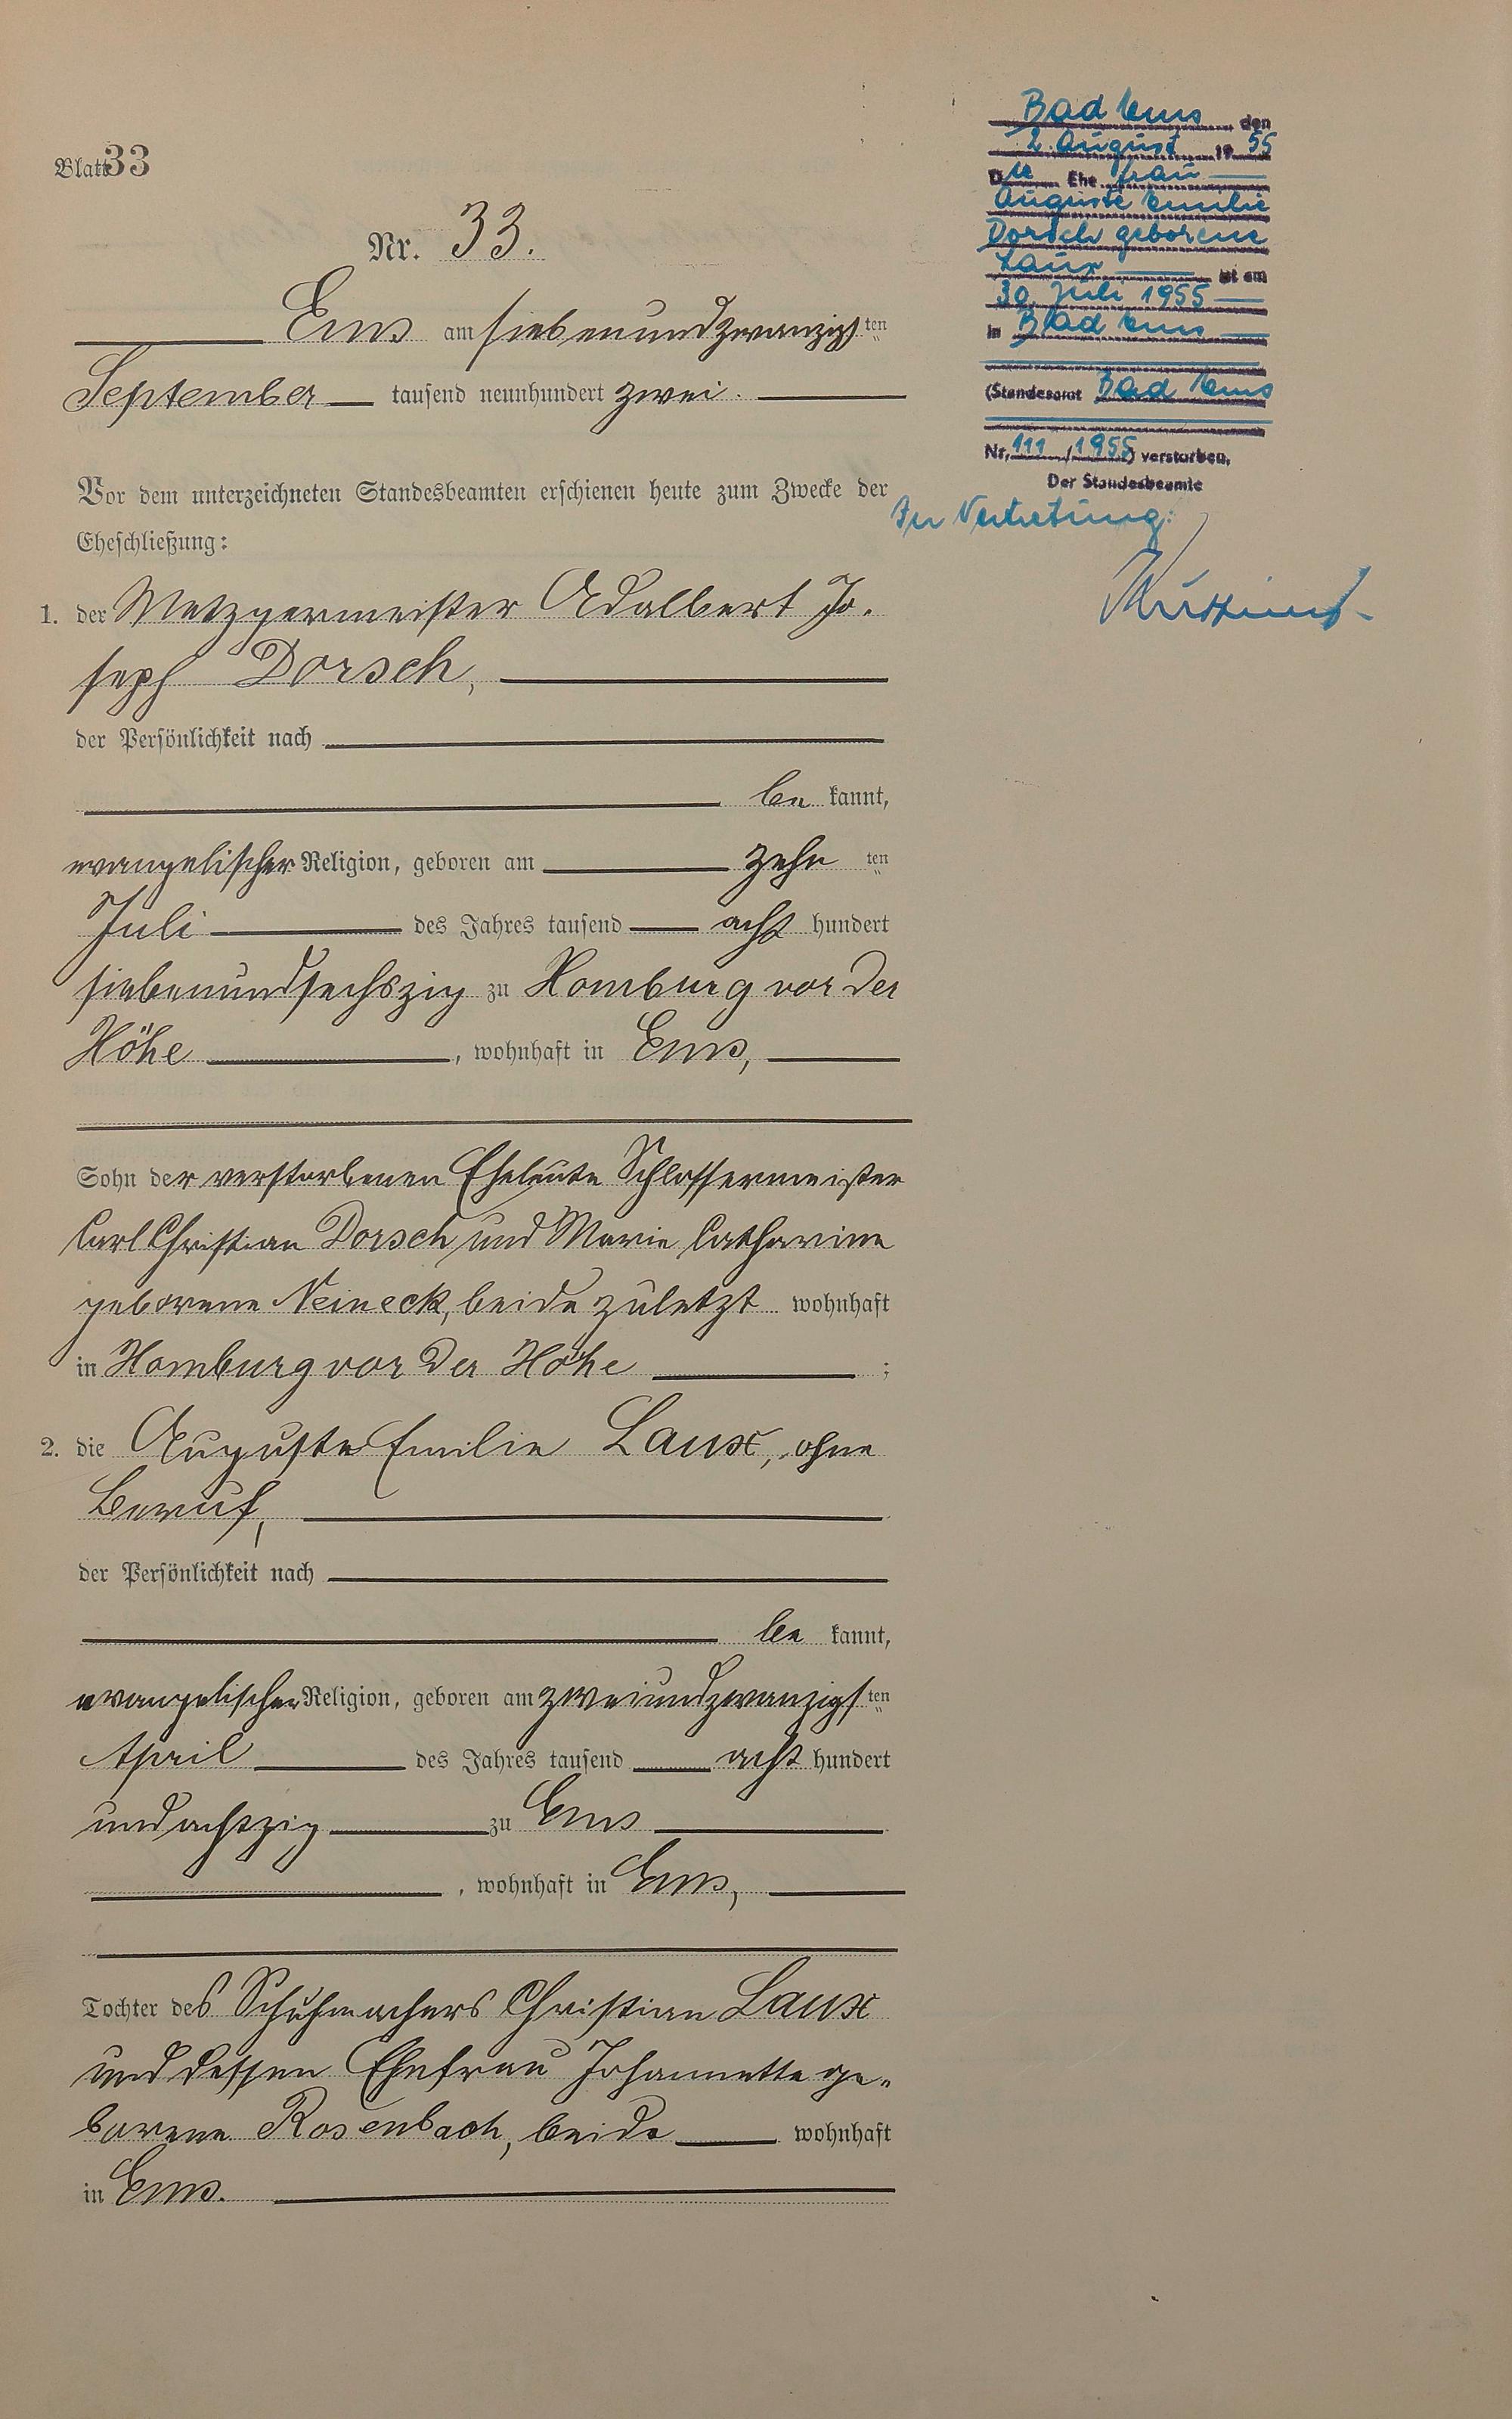 Blatt 33
Nr. 33.
Ems am siebenundzwanzigsten
September tausend neunhundert zwei.
Vor dem unterzeichneten Standesbeamten erschienen heute zum Zwecke der
Eheschließung:
1. der Metzgermeister Adalbert Jo-
seph Dorsch,
der Persönlichkeit nach
be kannt,
evangelischer Religion, geboren am zehn ten
Juli des Jahres tausend acht hundert
siebenundsechszig zu Homburg vor der
Höhe, wohnhaft in Ems,
Sohn der verstorbenen Eheleute Schlossermeister
Carl Christian Dorsch und Marie Catharine
geborene Neineck, beide zuletzt wohnhaft
in Homburg vor der Höhe;
2. die Auguste Emilie Laux, ohne
Beruf,
der Persönlichkeit nach
be kannt,
evangelischer Religion, geboren am zweiundzwanzigsten
April des Jahres tausend acht hundert
undachtzig zu Ems
, wohnhaft in Ems,
Tochter des Schuhmachers Christian Laux
und dessen Ehefrau Johannette ge-
borene Rosenbach, beide wohnhaft
in Ems.
Bad Ems den
2. August 1955
Die Ehefrau
Auguste Emilie
Dorsch geborene
Laux ist am
30. Juli 1955
in Bad Ems
(Standesamt Bad Ems
Nr. 111/1955) verstorben.
Der Standesbeamte
In Vertretung: